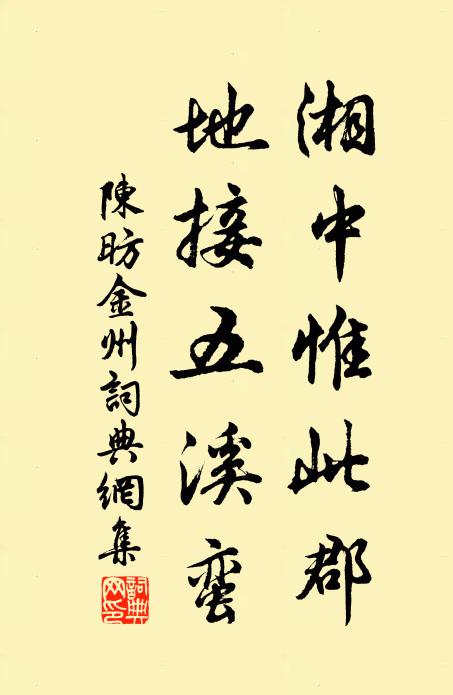 湘中惟此郡
地接五溪蛮
陳昉金州詞典網集
詞典
网印